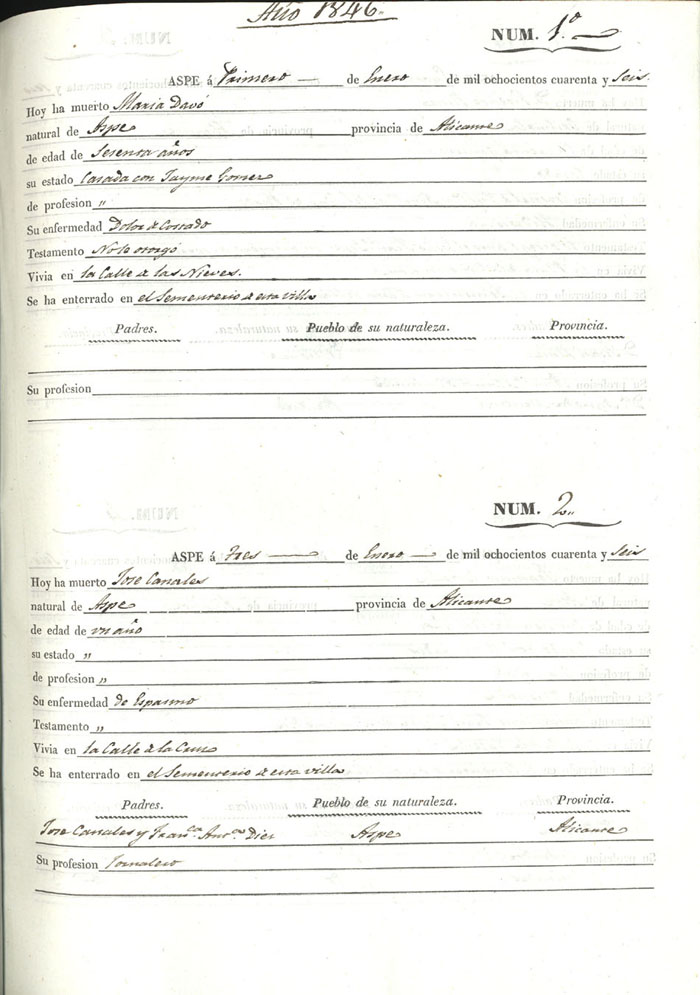 Año 1846.
NUM. 1.º
ASPE á Primero de Enero de mil ochocientos cuarenta y Seis.
Hoy ha muerto Maria Davó
natural de Aspe provincia de Alicante
de edad de Setenta años
su estado Casada con Jayme Gomez
de profesion "
Su enfermedad Dolor de Costado
Testamento No lo otorgó
Vivia en la Calle de las Nieves.
Se ha enterrado en el Sementerio de esta villa
Padres. Pueblo de su naturaleza. Provincia.
Su profesion
NUM. 2..
ASPE á Tres de Enero de mil ochocientos cuarenta y Seis
Hoy ha muerto Jose Canales
natural de Aspe provincia de Alicante
de edad de un año
su estado "
de profesion "
Su enfermedad de Espasmo
Testamento "
Vivia en la Calle de la Cruz
Se ha enterrado en el Sementerio de esta villa
Padres. Pueblo de su naturaleza. Provincia.
Jose Canales y Fran.ca Ant.ª Diez Aspe Alicante
Su profesion Jornalero